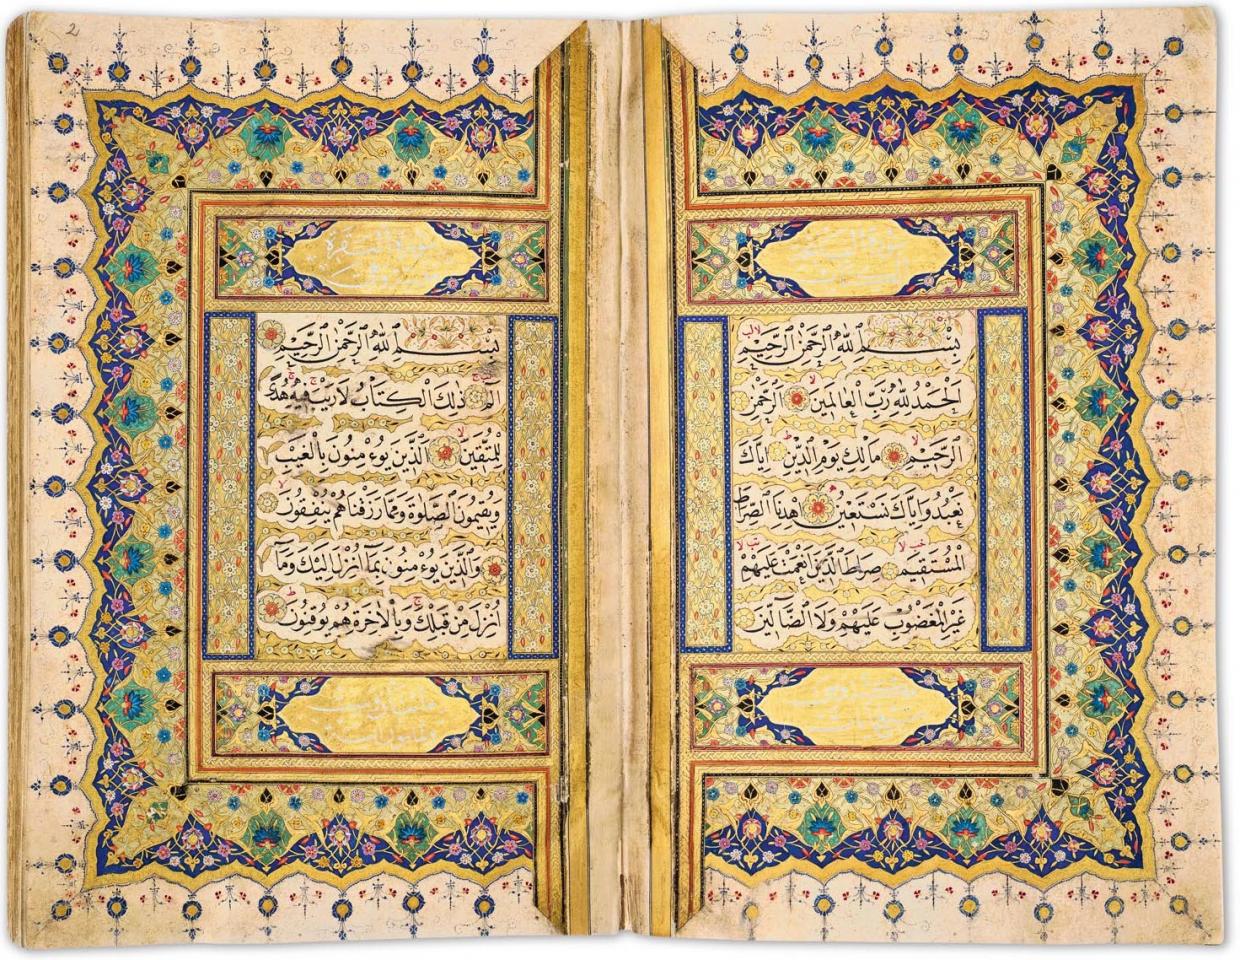 بِسْمِ ٱللّٰهِ ٱلرَّحْمٰنِ ٱلرَّحِيمِ
اَلْحَمْدُ لِلّٰهِ رَبِّ الْعَالَمِينَ اَلرَّحْمٰنِ
الرَّحِيمِ مَالِكِ يَوْمِ الدِّينِ اِيَّاكَ
نَعْبُدُ وَاِيَّاكَ نَسْتَعِينُ اِهْدِنَا الصِّرَاطَ
الْمُسْتَقِيمَ صِرَاطَ الَّذِينَ اَنْعَمْتَ عَلَيْهِمْ
غَيْرِ الْمَغْضُوبِ عَلَيْهِمْ وَلَا الضَّالِّينَ
2
بِسْمِ ٱللّٰهِ ٱلرَّحْمٰنِ ٱلرَّحِيمِ
الٓمٓ ذٰلِكَ الْكِتَابُ لَارَيْبَ فِيهِ هُدًى
لِلْمُتَّقِينَ اَلَّذِينَ يُوءْمِنُونَ بِالْغَيْبِ
وَيُقِيمُونَ الصَّلٰوةَ وَمِمَّا رَزَقْنَاهُمْ يُنْفِقُونَ
وَالَّذِينَ يُوءْمِنُونَ بِمَٓا اُنْزِلَ اِلَيْكَ وَمَٓا
اُنْزِلَ مِنْ قَبْلِكَ وَبِالْاٰخِرَةِ هُمْ يُوقِنُونَ